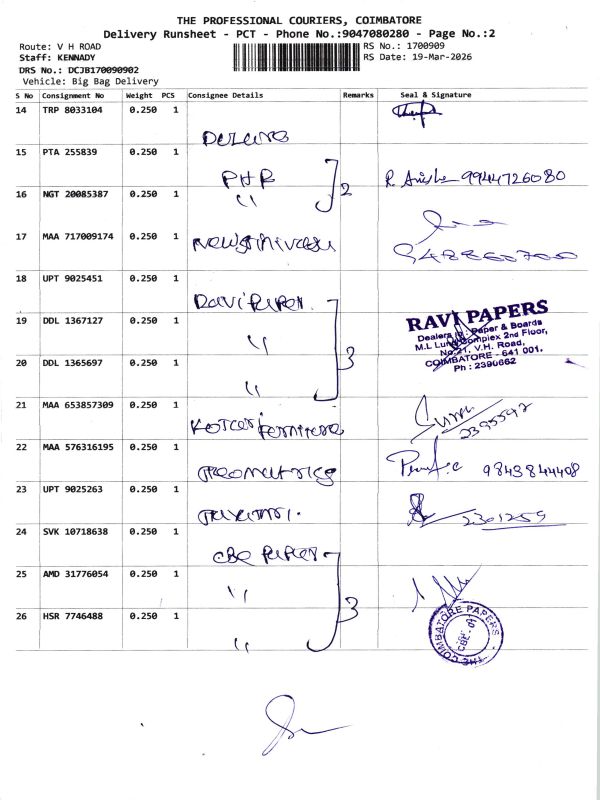 THE PROFESSIONAL COURIERS, COIMBATORE
Delivery Runsheet - PCT - Phone No.:9047080280 - Page No.:2
Route: V H ROAD RS No.: 1700909
Staff: KENNADY RS Date: 19-Mar-2026
DRS No.: DCJB170090902
Vehicle: Big Bag Delivery
S No Consignment No Weight PCS Consignee Details Remarks Seal & Signature
14 TRP 8033104 0.250 1
15 PTA 255839 0.250 1
PHR 2 9944726080
16 NGT 20085387 0.250 1
"
17 MAA 717009174 0.250 1
18 UPT 9025451 0.250 1
Ravi Paper.
RAVI PAPERS
Dealers in : Paper & Boards
19 DDL 1367127 0.250 1
M.L Complex 2nd Floor,
No.21, V.H. Road,
" 3
COIMBATORE - 641 001.
20 DDL 1365697 0.250 1
Ph : 2390662
"
21 MAA 653857309 0.250 1
22 MAA 576316195 0.250 1
9843844408
23 UPT 9025263 0.250 1
2301259
24 SVK 10718638 0.250 1
CBE Paper
25 AMD 31776054 0.250 1
" 3
26 HSR 7746488 0.250 1
THE COIMBATORE PAPERS
"